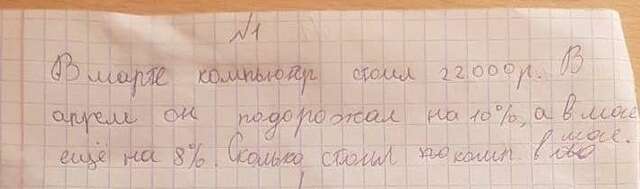 №1
В марте компьютер стоил 22000р. В
апреле он подорожал на 10%, а в мае
ещё на 8%. Сколько стоил комп. в
мае.